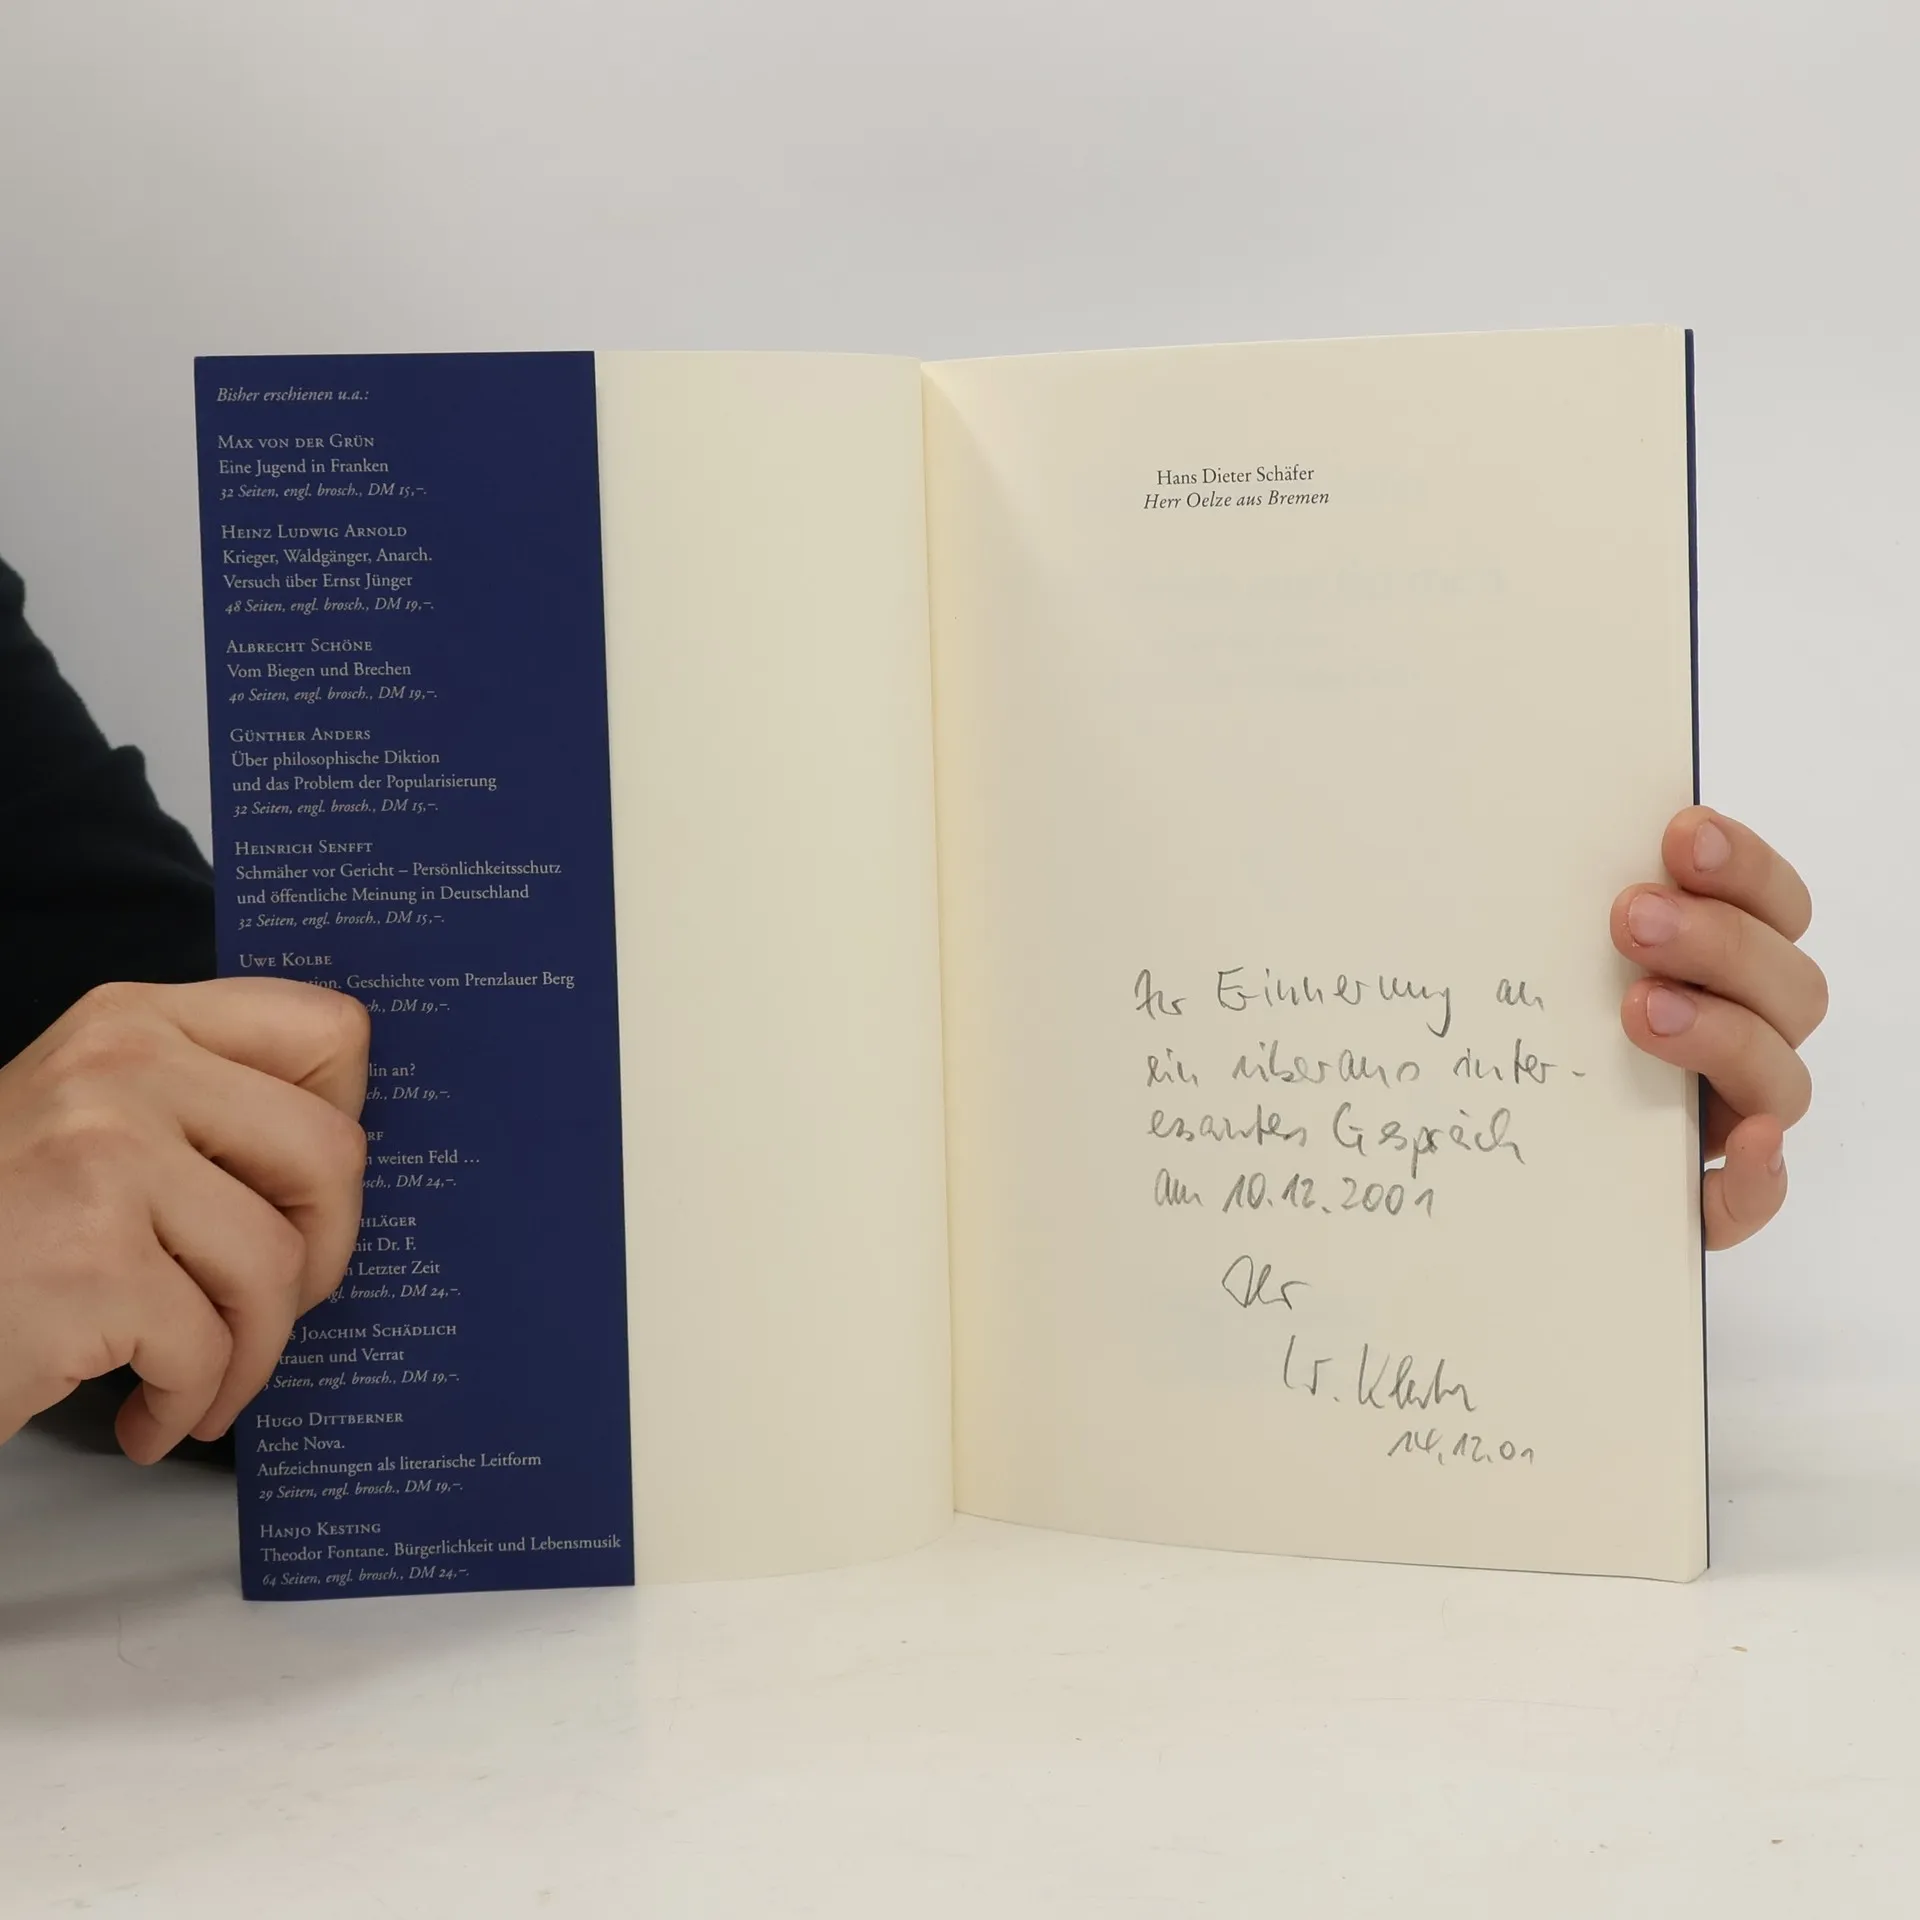 Bisher erschienen u.a.:
Max von der Grün
Eine Jugend in Franken
32 Seiten, engl. brosch., DM 15,–.
Heinz Ludwig Arnold
Krieger, Waldgänger, Anarch.
Versuch über Ernst Jünger
48 Seiten, engl. brosch., DM 19,–.
Albrecht Schöne
Vom Biegen und Brechen
40 Seiten, engl. brosch., DM 19,–.
Günther Anders
Über philosophische Diktion
und das Problem der Popularisierung
32 Seiten, engl. brosch., DM 15,–.
Heinrich Senfft
Schmäher vor Gericht – Persönlichkeitsschutz
und öffentliche Meinung in Deutschland
32 Seiten, engl. brosch., DM 15,–.
Uwe Kolbe
Geschichte vom Prenzlauer Berg
DM 19,–.
an?
DM 19,–.
weiten Feld …
DM 24,–.
Dr. F.
Letzter Zeit
brosch., DM 24,–.
Joachim Schädlich
und Verrat
Seiten, engl. brosch., DM 19,–.
Hugo Dittberner
Arche Nova.
Aufzeichnungen als literarische Leitform
29 Seiten, engl. brosch., DM 19,–.
Hanjo Kesting
Theodor Fontane. Bürgerlichkeit und Lebensmusik
64 Seiten, engl. brosch., DM 24,–.
Hans Dieter Schäfer
Herr Oelze aus Bremen
Zur Erinnerung an
ein überaus inter-
essantes Gespräch
am 10.12.2001
Ihr
W.
14.12.01